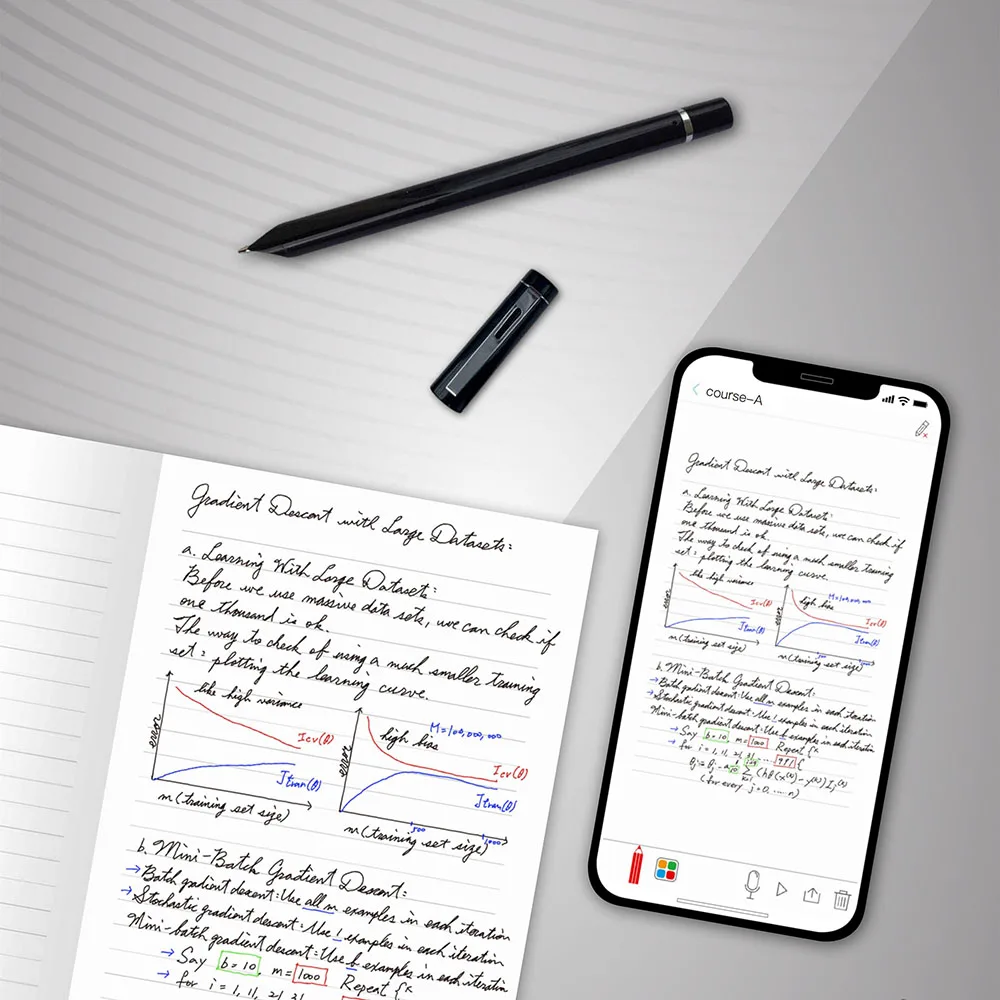 Gradient Descent with Large Datasets:
a. Learning With Large Datasets:
Before we use massive data sets, we can check if
one thousand is ok.
The way to check of using a much smaller training
set: plotting the learning curve.
like high variance
error
Jcv(θ)
Jtran(θ)
m (training set size)
high bias
M=100,000,000
error
Jcv(θ)
Jtran(θ)
500
1,000
m (training set size)
b. Mini-Batch Gradient Descent:
→Batch gradient descent: Use all m examples in each iteration
→Stochastic gradient descent: Use 1 examples in each iteration
Mini-batch gradient descent: Use b examples in each iteration
→ Say b=10, m=1000 Repeat {
→ for i = 1, 11, 21, 31
course-A
Gradient Descent with Large Datasets:
a. Learning With Large Datasets:
Before we use massive data sets, we can check if
one thousand is ok.
The way to check of using a much smaller training
set: plotting the learning curve.
like high variance
Jcv(θ)
Jtran(θ)
error
m (training set size)
high bias
M=100,000,000
Jcv(θ)
Jtran(θ)
error
m (training set size)
b. Mini-Batch Gradient Descent:
→Batch gradient descent: Use all m examples in each iteration
→Stochastic gradient descent: Use 1 examples in each iteration
Mini-batch gradient descent: Use b examples in each iteration
→ Say b=10 m=1000 Repeat {
→ for i = 1, 11, 21, 31, .... 991 {
(for every j = 0, ..... n)